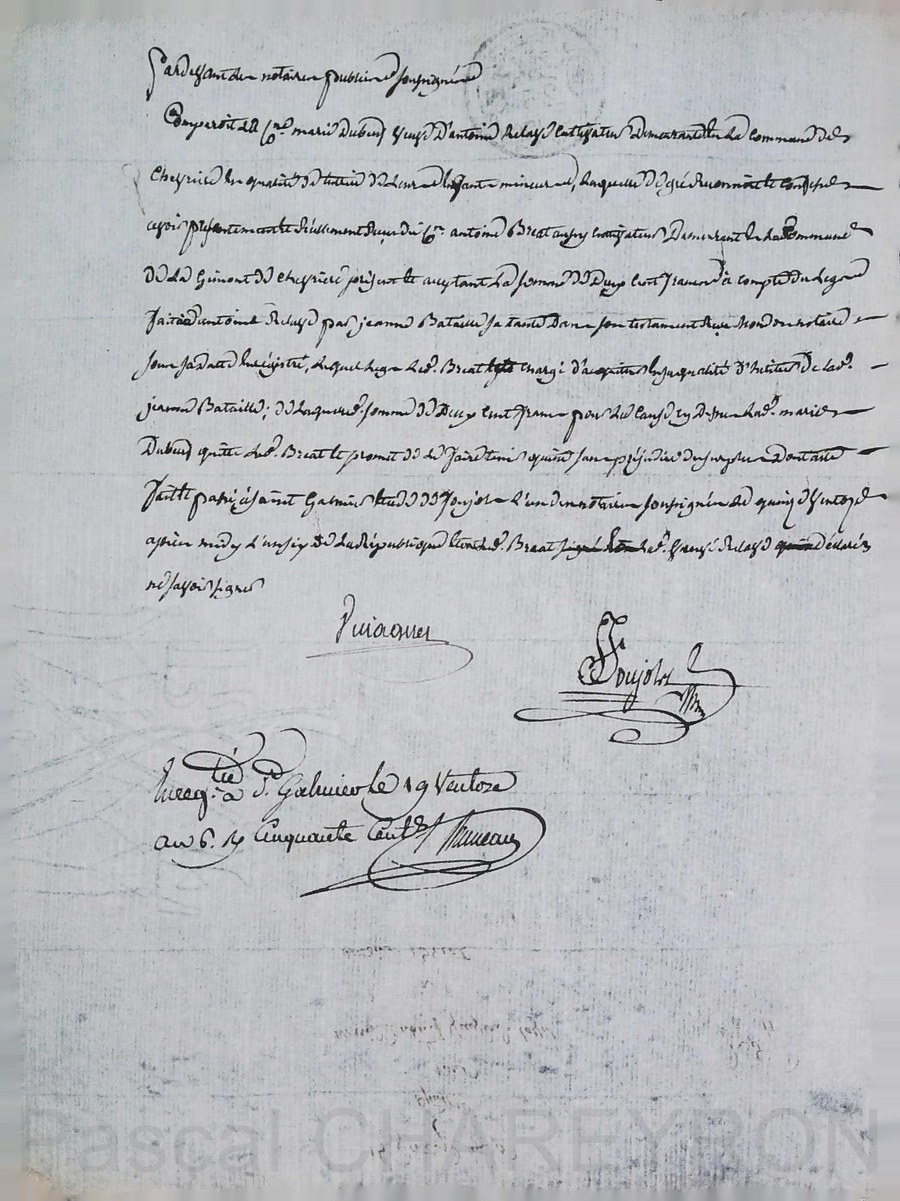 Pardevant les notaires publics soussignés
Comparoit la C.ne marie Dubeuf veuve d'antoine Relave cultivateur demeurant en la commune de
Chevrière en qualité de tutrice de leurs enfants mineures, laquelle de gré reconnoit et confesse
avoir présentement et réellement reçu du C.en antoine Breat aussy cultivateur demeurant en la Commune
de la Gimont de Chevrière présent et acceptant la somme de Deux Cent francs à compte du legs
fait à antoine Relave par jeanne Bataille sa tante dans son testament reçu notaire
sous sa date enregistré, duquel legs led. Breat chargé d'acquitter en sa qualité d'héritier de lad.
jeanne Bataille; de laquelle somme de Deux Cent francs pour les causes cy dessus lad. marie
Dubeuf quitte led. Breat et promet de le faire tenir quitte sans préjudice du surplus Dont acte
fait et passé à Saint Galmier étude de Foujols l'un des notaires soussignés le quinze Ventose
après midy l'an six de la république led. Breat lad. veuve Relave déclaré
ne savoir signer
Foujols
Enreg.tré à S.t Galmier le 19 Ventose
an 6. R Cinquante Cent.es
Pascal CHAREYRON